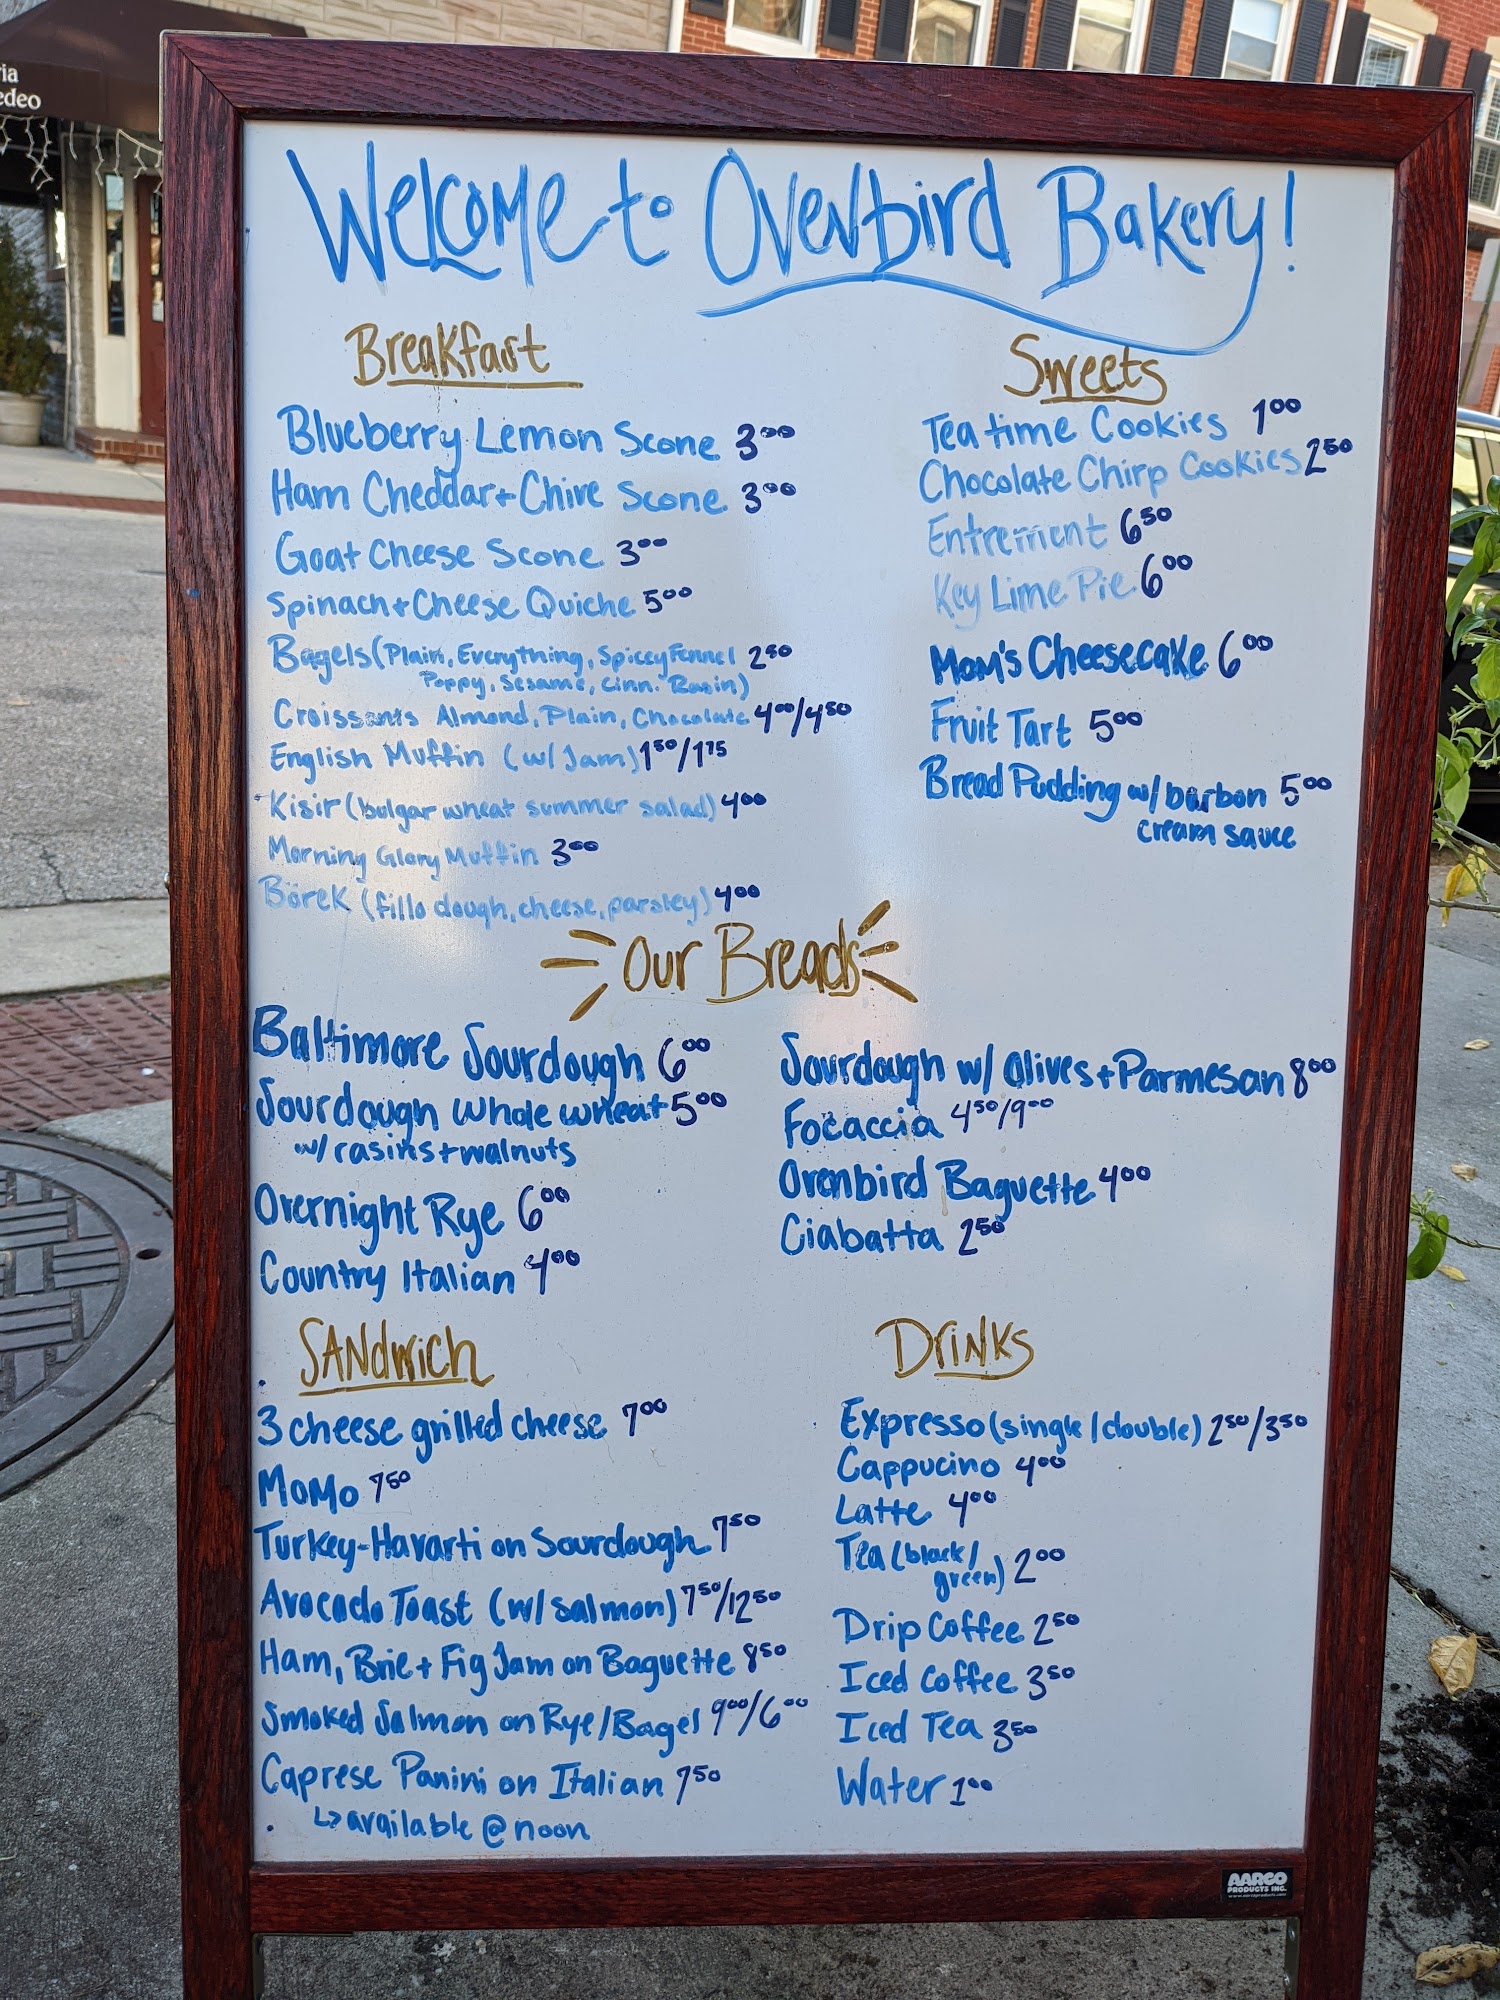 ia
edeo
Welcome to Ovenbird Bakery!
Breakfast
Blueberry Lemon Scone 3.00
Ham Cheddar + Chive Scone 3.00
Goat Cheese Scone 3.00
Spinach + Cheese Quiche 5.00
Bagels (Plain, Everything, Spicey Fennel 2.50
Poppy, Sesame, Cinn. Rasin)
Croissants Almond, Plain, Chocolate 4.00/4.50
English Muffin (w/ Jam) 1.50/1.75
Kisir (bulgar wheat summer salad) 4.00
Morning Glory Muffin 3.00
Börek (fillo dough, cheese, parsley) 4.00
Sweets
Tea time Cookies 1.00
Chocolate Chirp Cookies 2.50
Entrement 6.50
Key Lime Pie 6.00
Mom's Cheesecake 6.00
Fruit Tart 5.00
Bread Pudding w/ barbon 5.00
cream sauce
Our Breads
Baltimore Sourdough 6.00
Sourdough whole wheat 5.00
w/ rasins + walnuts
Overnight Rye 6.00
Country Italian 4.00
Sourdough w/ Olives + Parmesan 8.00
Focaccia 4.50/9.00
Ovenbird Baguette 4.00
Ciabatta 2.50
SANdwich
3 cheese grilled cheese 7.00
MoMo 7.50
Turkey-Havarti on Sourdough 7.50
Avocado Toast (w/ salmon) 7.50/12.50
Ham, Brie + Fig Jam on Baguette 8.50
Smoked Salmon on Rye/Bagel 9.00/6.00
Caprese Panini on Italian 7.50
↳ available @ noon
Drinks
Expresso (single/double) 2.50/3.50
Cappucino 4.00
Latte 4.00
Tea (black/
green) 2.00
Drip Coffee 2.50
Iced Coffee 3.50
Iced Tea 3.50
Water 1.00
AARCO
PRODUCTS INC.